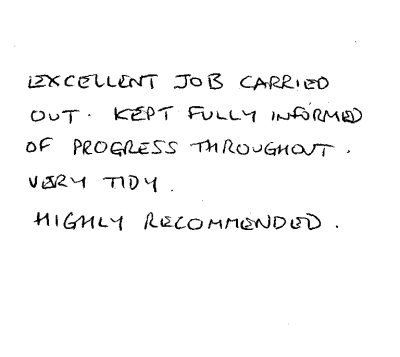 EXCELLENT JOB CARRIED
OUT. KEPT FULLY INFORMED
OF PROGRESS THROUGHOUT.
VERY TIDY.
HIGHLY RECOMMENDED.